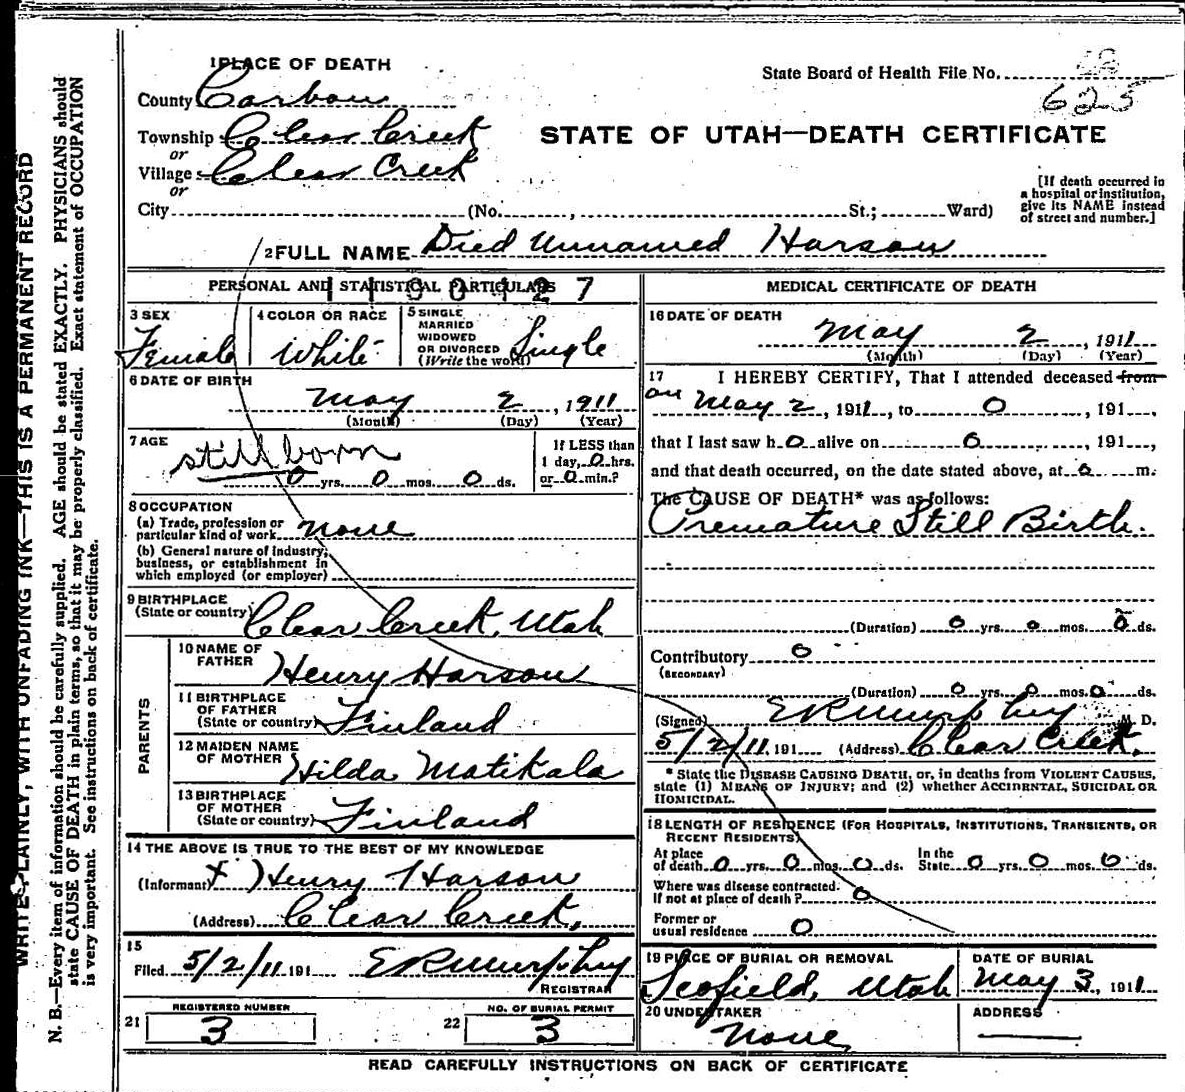 1 PLACE OF DEATH
State Board of Health File No.
625
County Carbon
Township Clear Creek
or
Village Clear Creek
or
STATE OF UTAH—DEATH CERTIFICATE
City (No. , St.; Ward)
[If death occurred in
a hospital or institution,
give its NAME instead
of street and number.]
2 FULL NAME Died Unnamed Harson
PERSONAL AND STATISTICAL PARTICULARS
3 SEX
Female
4 COLOR OR RACE
White
5 SINGLE
MARRIED
WIDOWED
OR DIVORCED
(Write the word)
Single
6 DATE OF BIRTH
May 2, 1911
(Month) (Day) (Year)
7 AGE
still born
0 yrs. 0 mos. 0 ds.
If LESS than
1 day, 0 hrs.
or 0 min.?
8 OCCUPATION
(a) Trade, profession or
particular kind of work none
(b) General nature of industry,
business, or establishment in
which employed (or employer)
9 BIRTHPLACE
(State or country) Clear Creek, Utah
PARENTS
10 NAME OF
FATHER Henry Harson
11 BIRTHPLACE
OF FATHER
(State or country) Finland
12 MAIDEN NAME
OF MOTHER Hilda Matikala
13 BIRTHPLACE
OF MOTHER
(State or country) Finland
14 THE ABOVE IS TRUE TO THE BEST OF MY KNOWLEDGE
(Informant) x Henry Harson
(Address) Clear Creek,
15
Filed 5/2/11 191 E R Murphy
REGISTRAR
REGISTERED NUMBER
21 3
NO. OF BURIAL PERMIT
22 3
MEDICAL CERTIFICATE OF DEATH
16 DATE OF DEATH
May 2, 1911
(Month) (Day) (Year)
17 I HEREBY CERTIFY, That I attended deceased from
on May 2, 1911, to 0, 191 ,
that I last saw h 0 alive on 0, 191 ,
and that death occurred, on the date stated above, at 0 m.
The CAUSE OF DEATH* was as follows:
Premature Still Birth.
(Duration) 0 yrs. 0 mos. 0 ds.
Contributory 0
(SECONDARY)
(Duration) 0 yrs. 0 mos. 0 ds.
(Signed) E R Murphy M. D.
5/2/11 191 (Address) Clear Creek.
* State the DISEASE CAUSING DEATH, or, in deaths from VIOLENT CAUSES,
state (1) MEANS OF INJURY; and (2) whether ACCIDENTAL, SUICIDAL OR
HOMICIDAL.
18 LENGTH OF RESIDENCE (FOR HOSPITALS, INSTITUTIONS, TRANSIENTS, OR
RECENT RESIDENTS)
At place
of death 0 yrs. 0 mos. 0 ds.
In the
State 0 yrs. 0 mos. 0 ds.
Where was disease contracted.
If not at place of death? 0
Former or
usual residence 0
19 PLACE OF BURIAL OR REMOVAL
Scofield, Utah
DATE OF BURIAL
May 3, 1911
20 UNDERTAKER
None
ADDRESS
READ CAREFULLY INSTRUCTIONS ON BACK OF CERTIFICATE
WRITE PLAINLY, WITH UNFADING INK—THIS IS A PERMANENT RECORD
N. B.—Every item of information should be carefully supplied. AGE should be stated EXACTLY. PHYSICIANS should
state CAUSE OF DEATH in plain terms, so that it may be properly classified. Exact statement of OCCUPATION
is very important. See instructions on back of certificate.